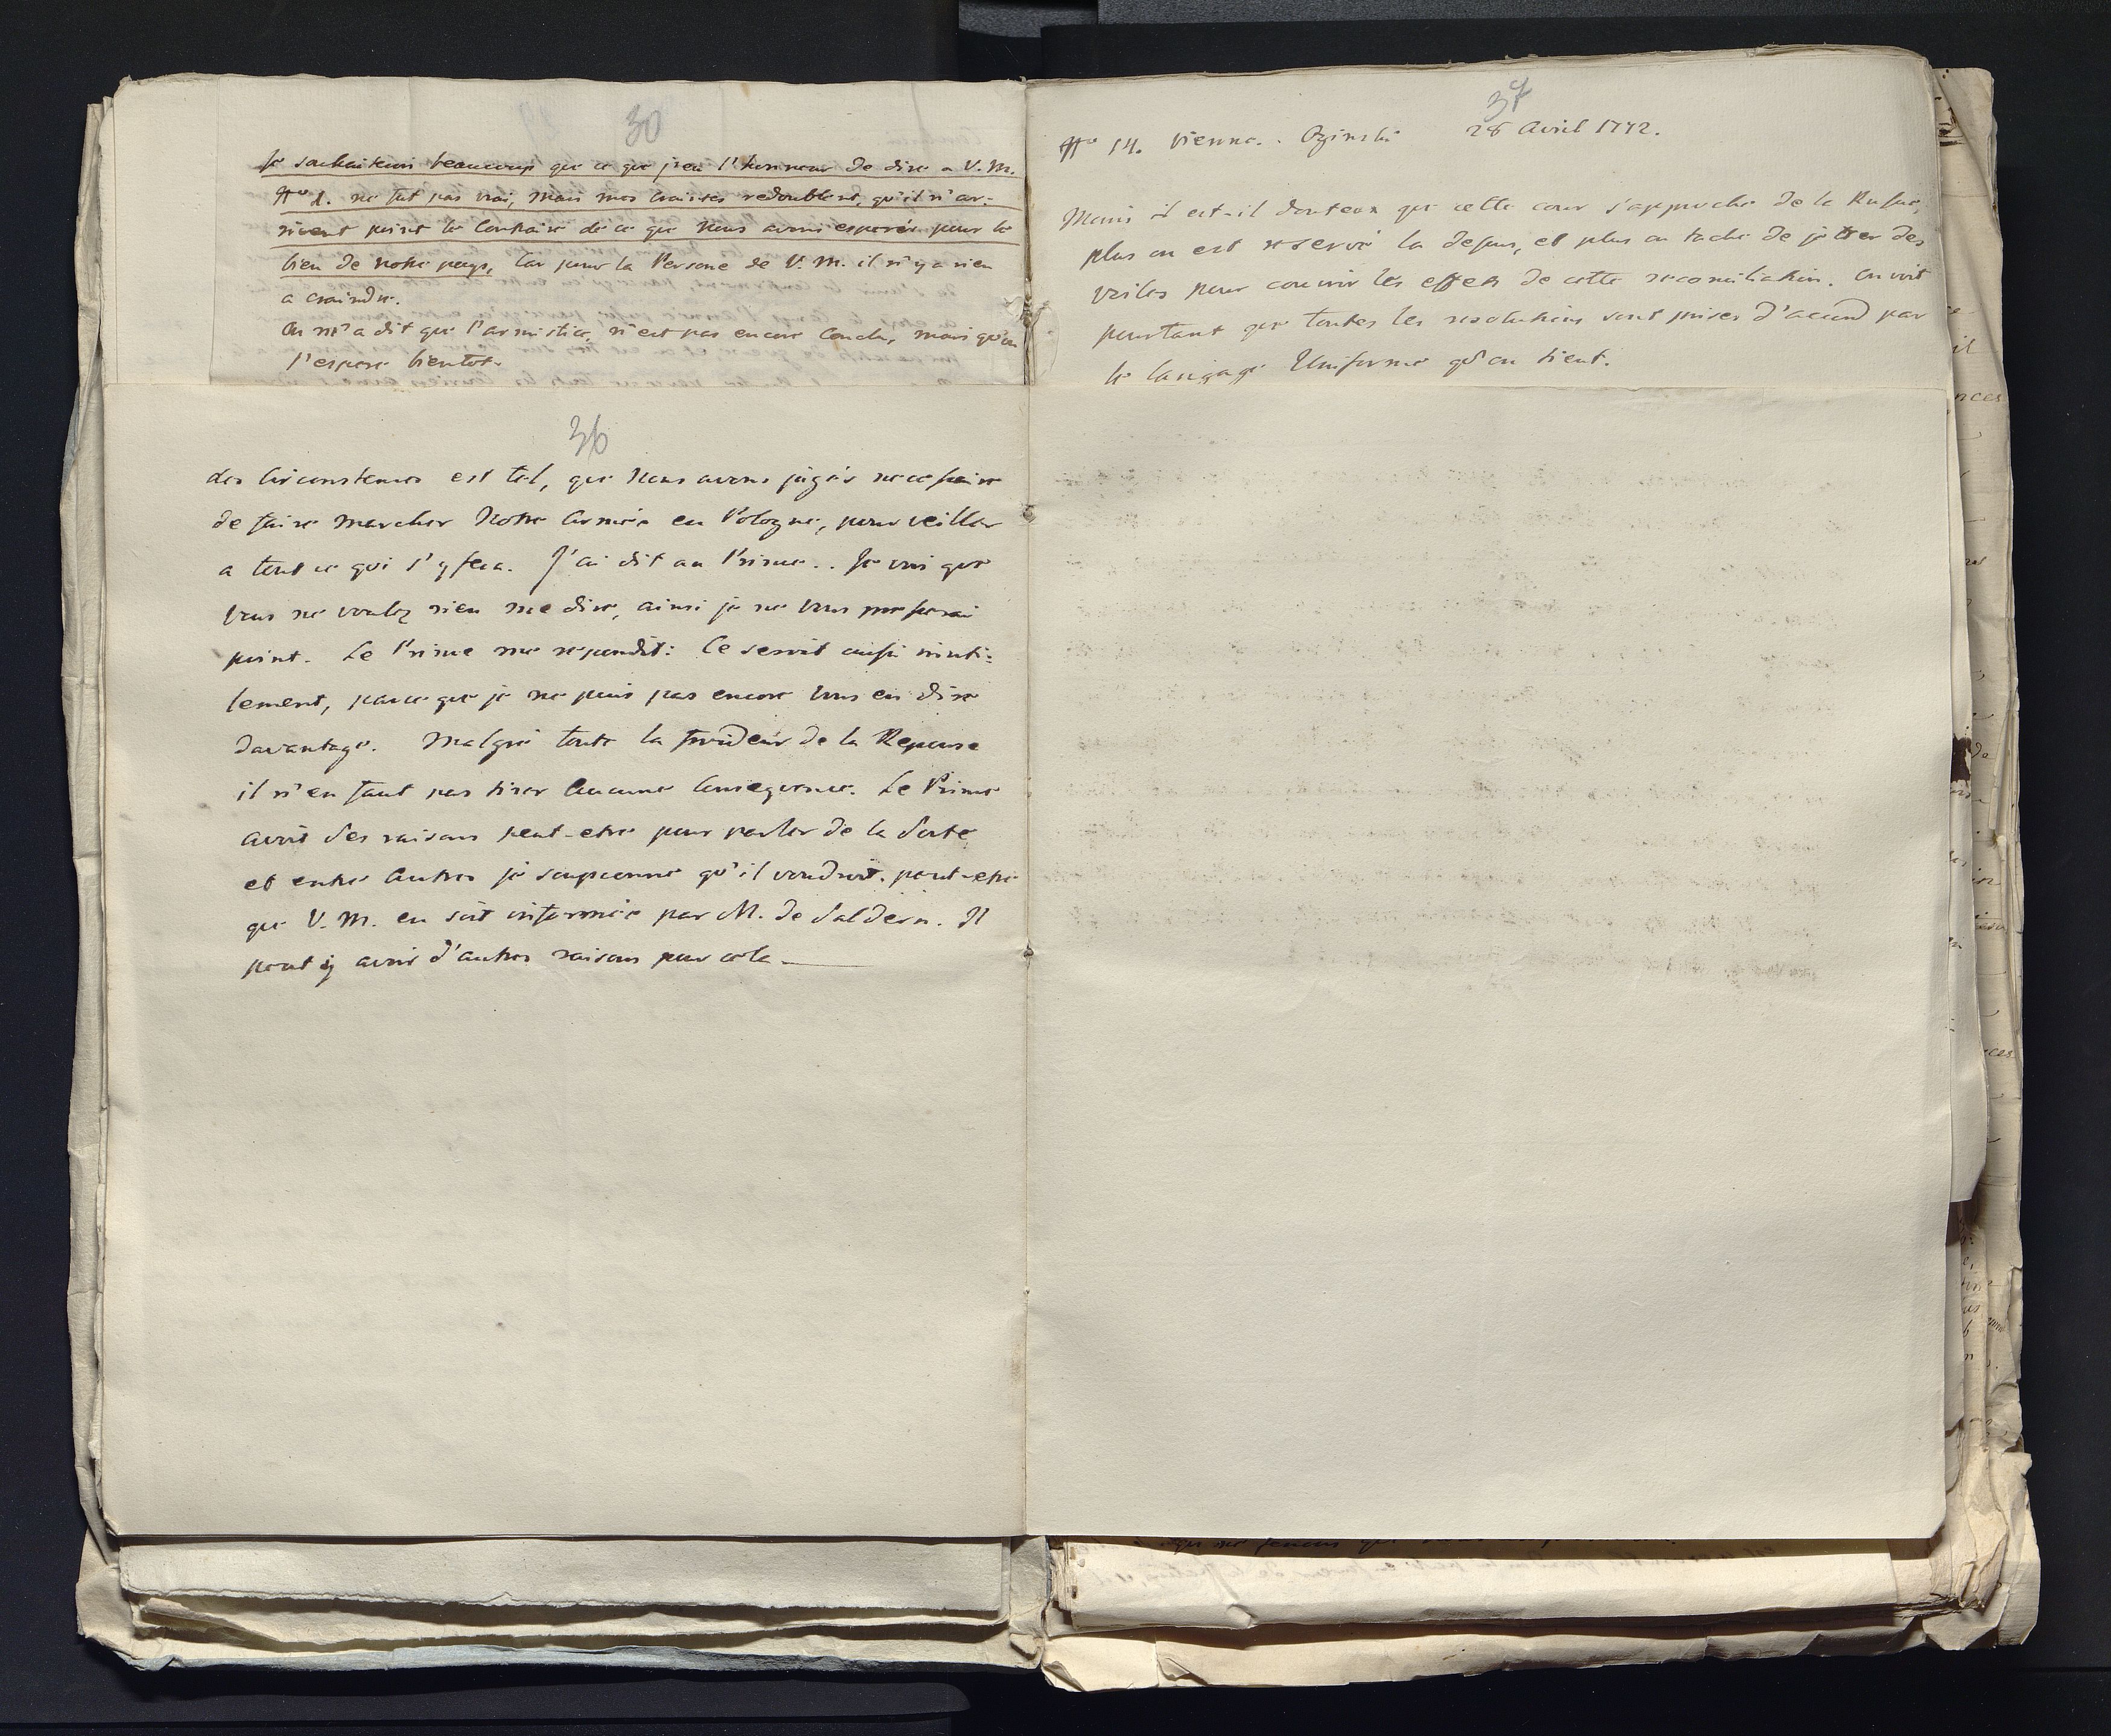 30
Je souhaiterois beaucoup que ce que j'eu l'honneur de dire a V. M.
No 1. ne fut pas vrai, mais mes craintes redoublent, qu'il n'ar-
rivent point le Contraire de ce que Nous avons esperés pour le
bien de notre pays, Car pour la Persone de V. M. il n'y a rien
a craindre.
On m'a dit que l'armistice, n'est pas encore Conclu, mais qu'on
l'espere bientot.
36
des Circonstences est tel, que Nous avons jugés necessaire
de faire marcher Notre Armée en Pologne, pour veiller
a tout ce qui s'y fera. J'ai dit au Prince.. Je vois que
Vous ne voulez rien me dire, ainsi je ne Vous presserai
point. Le Prince me repondit: Ce seroit aussi inuti=
lement, parce que je ne puis pas encore Vous en dire
davantage. Malgré toute la froideur de la Reponse
il n'en faut pas tirer Aucune Consequence. Le Prince
avoit des raisons peut-etre pour parler de la Sorte
et entre Autres je soupconne qu'il voudroit. peut-etre
que V. M. en soit informée par M. de Saldern. Il
peut y avoir d'autres raisons pour cela
37
No 14. Vienne.. Oginski 28 Avril 1772.
Moins il est-il douteux que cette cour s'approche de la Russie,
plus on est reservé la desus, et plus on tache de jetter des
voiles pour couvrir les effets de cette reconciliation. On voit
pourtant que toutes les resolutions sont prises d'acord par
le langage Uniforme qu'on tient.